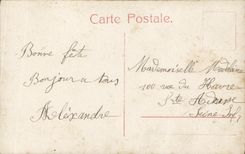 Carte Postale.
Bonne fête
Bonjour a tous
Alexandre
Mademoiselle Madeleine
100 rue du Havre
Ste Adresse
Seine Inf